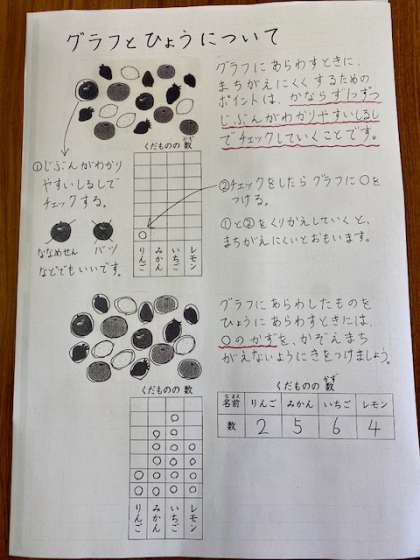 グラフとひょうについて
グラフにあらわすときに、
まちがえにくくするための
ポイントは、かならず1つずつ
じぶんがわかりやすいしるし
でチェックしていくことです。
くだものの 数
①じぶんがわかり
やすいしるしで
チェックする。
ななめせん
バツ
などでもいいです。
②チェックをしたらグラフに○を
つける。
①と②をくりかえしていくと、
まちがえにくいとおもいます。
りんご
みかん
いちご
レモン
グラフにあらわしたものを
ひょうにあらわすときには、
○のかずを、かぞえまち
がえないようにきをつけましょう。
くだものの 数
りんご
みかん
いちご
レモン
くだものの 数
かず
名前 りんご みかん いちご レモン
なまえ
数 2 5 6 4